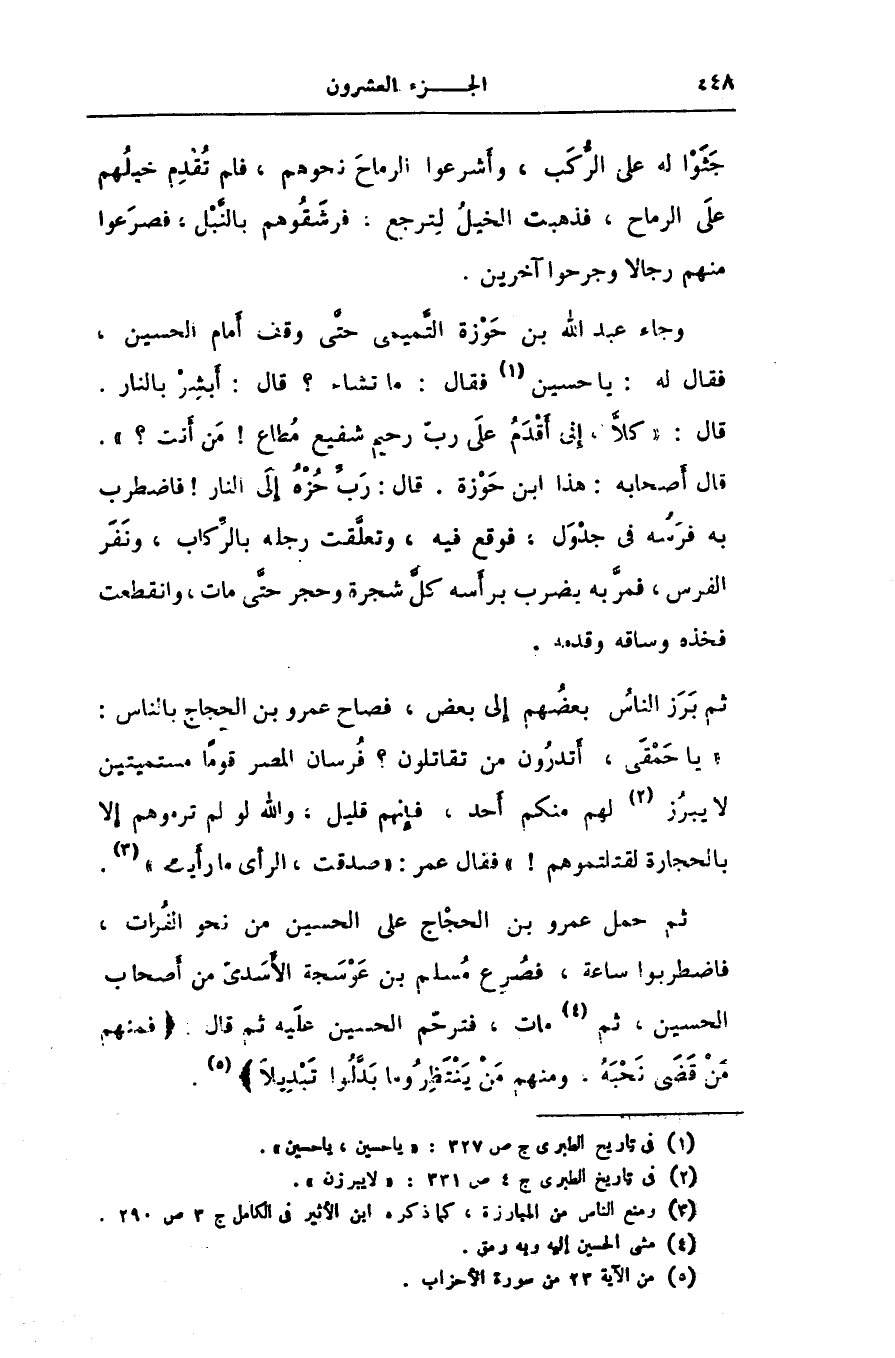 ٤٤٨ الجـــزء العشرون
جَثَوْا له على الرُّكَب ، وأَشرعوا الرماحَ نحوهم ، فلم تُقْدِم خيلُهم
علَى الرماح ، فذهبت الخيلُ لِترجع ؛ فرشَقُوهم بالنَّبْل ؛ فصرَعوا
منهم رجالا وجرحوا آخرين .
وجاء عبد الله بن حَوْزة التَّميمى حتَّى وقف أَمام الحسين ،
فقال له : ياحسين (١) فقال : ما تشاء ؟ قال : أَبشِرْ بالنار .
قال : « كلاَّ ، إنى أَقْدَمُ علَى ربّ رحيم شفيع مُطاع ! مَن أَنت ؟ » .
قال أَصحابه : هذا ابن حَوْزة . قال : رَبِّ حُزْهُ إلَى النار ! فاضطرب
به فرَسُه فى جدْوَل ؛ فوقع فيه ، وتعلَّقت رجله بالرِّكاب ، ونَفَر
الفرس ، فمرَّ به يضرب برأسه كلَّ شجرة وحجر حتَّى مات ، وانقطعت
فخذه وساقه وقدمه .
ثم بَرَز الناسُ بعضُهم إلى بعض ، فصاح عمرو بن الحجاج بالناس :
« يا حَمْقَى ، أَتدرُون من تقاتلون ؟ فُرسان المصر قومًا مستميتين
لايبرُز (٢) لهم منكم أَحد ، فإنهم قليل ، والله لو لم ترموهم إلا
بالحجارة لقتلتموهم ! » فقال عمر : « صدقت ، الرأى ما رأَيت » (٣) .
ثم حمل عمرو بن الحجَّاج على الحسين من نحو الفُرات ،
فاضطربوا ساعة ، فصُرِع مُسلم بن عَوْسَجة الأَسَدىّ من أَصحاب
الحسين ، ثم (٤) مات ، فترحّم الحسين علَيه ثم قال : ﴿ فمنهم
مَنْ قَضَى نَحْبَهُ . ومنهم مَنْ يَنْتَظِرُ وما بَدَّلُوا تَبْدِيلاً ﴾ (٥) .
(١) فى تاريخ الطبرى ج ص ٣٢٧ : « ياحسين ، ياحسين » .
(٢) فى تاريخ الطبرى ج ٤ ص ٣٣١ : « لايبرزن » .
(٣) ومنع الناس من المبارزة ، كما ذكره ابن الأثير فى الكامل ج ٣ ص ٢٩٠ .
(٤) مشى الحسين إليه وبه رمق .
(٥) من الآية ٢٣ من سورة الأحزاب .